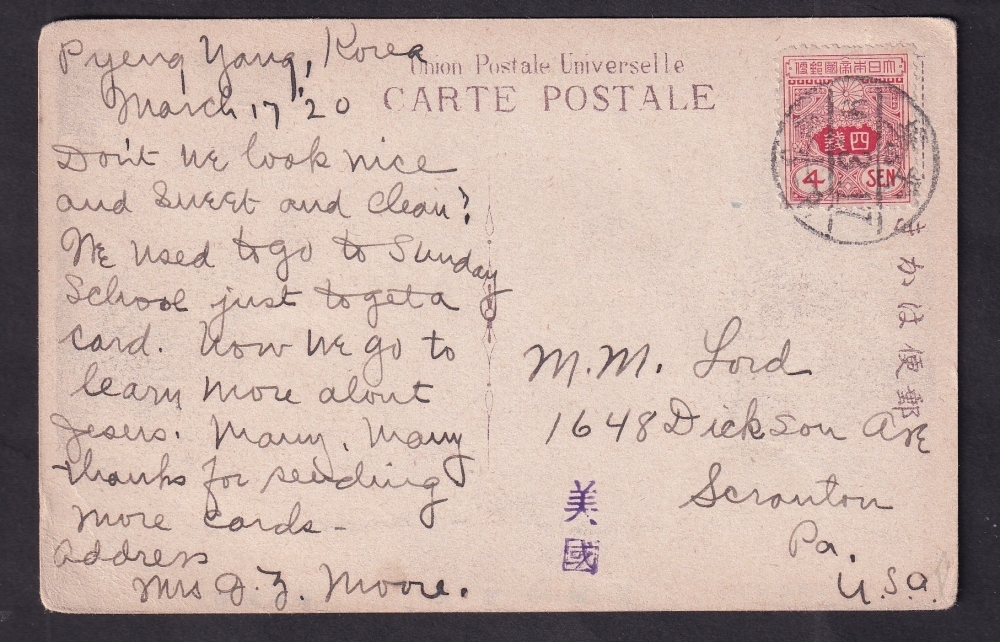 Pyeng Yang, Korea
March 17 '20
Don't we look nice
and sweet and clean?
We used to go to Sunday
School just to get a
card. Now we go to
learn more about
Jesus. Many, Many
thanks for sending
more cards -
Address
Mrs J. Z. Moore.
Union Postale Universelle
CARTE POSTALE
大日本帝國郵便
四錢
4 SEN
きかは便郵
M. M. Lord
1648 Dickson Ave
Scranton
Pa.
U.S.A.
美國